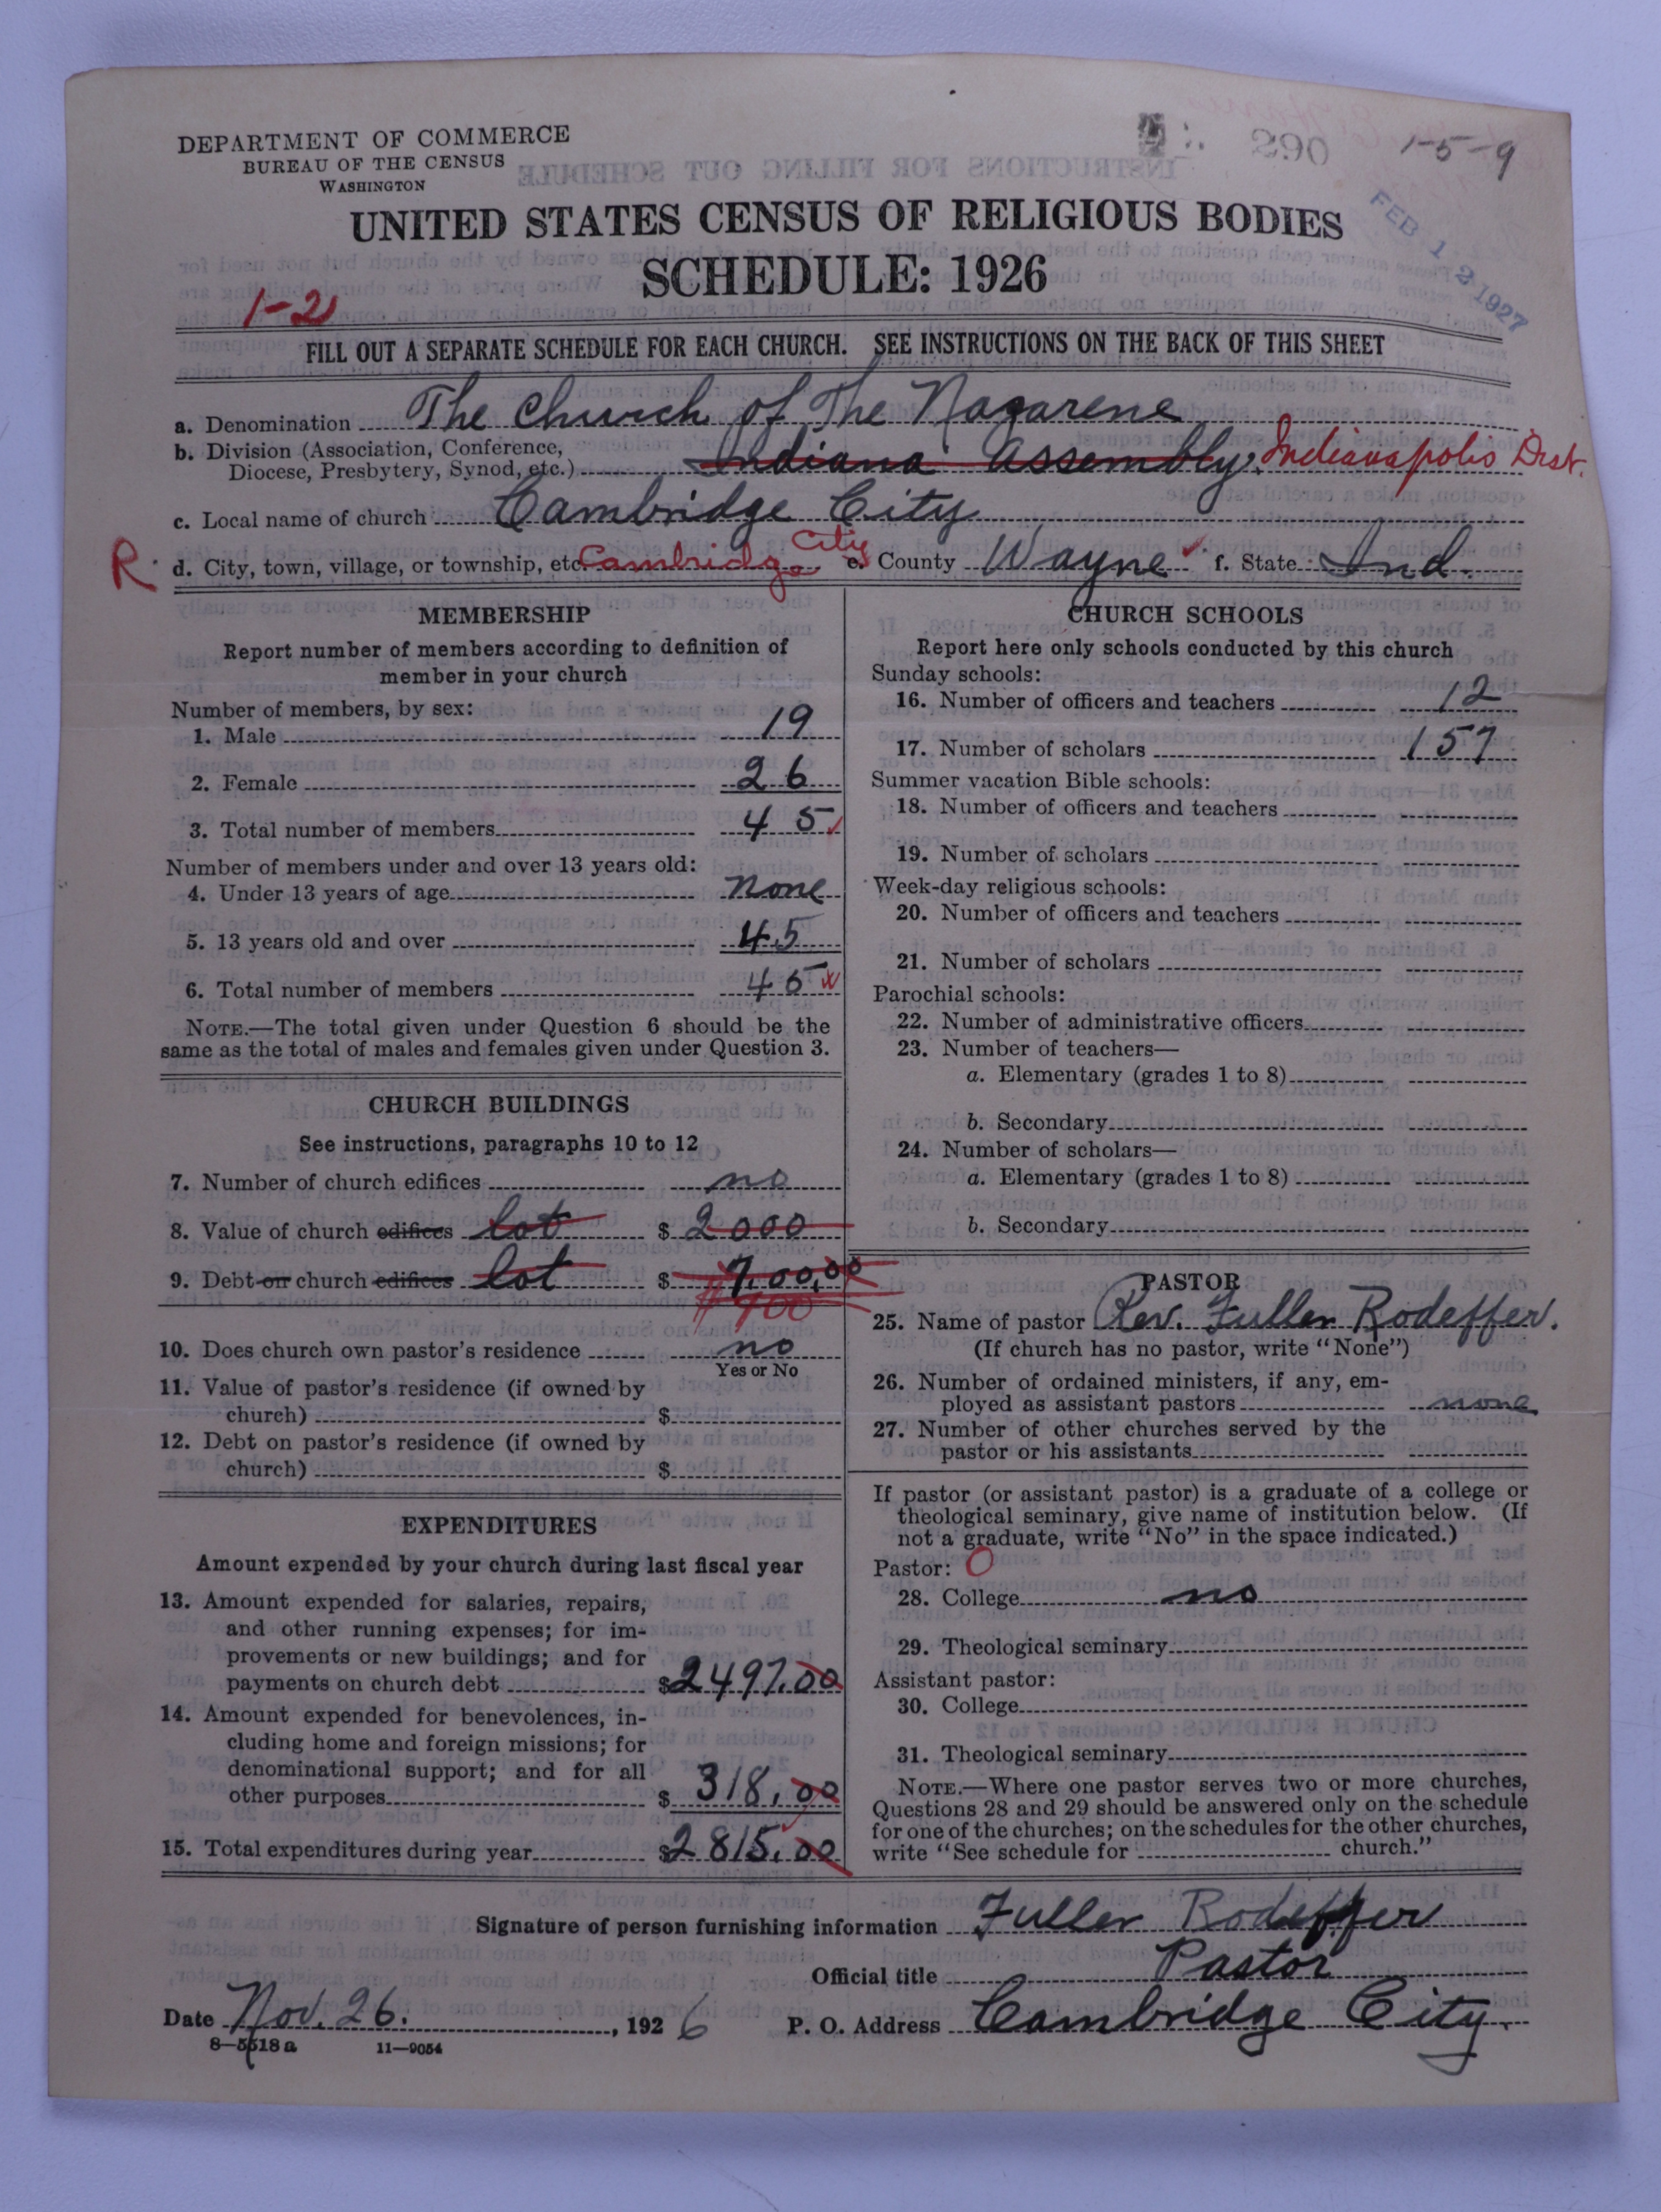 DEPARTMENT OF COMMERCE
BUREAU OF THE CENSUS
WASHINGTON
290
1-5-9
FEB 12 1927
UNITED STATES CENSUS OF RELIGIOUS BODIES
SCHEDULE: 1926
1-21
FILL OUT A SEPARATE SCHEDULE FOR EACH CHURCH. SEE INSTRUCTIONS ON THE BACK OF THIS SHEET
a. Denomination The Church of The Nazarene
b. Division (Association, Conference, Diocese, Presbytery, Synod, etc.) Indiana Assembly. Indianapolis Dist.
c. Local name of church Cambridge City
R d. City, town, village, or township, etc. Cambridge City e. County Wayne f. State Ind.
MEMBERSHIP
Report number of members according to definition of
member in your church
Number of members, by sex:
1. Male 19
2. Female 26
3. Total number of members 45
Number of members under and over 13 years old:
4. Under 13 years of age none
5. 13 years old and over 45
6. Total number of members 45
NOTE.—The total given under Question 6 should be the
same as the total of males and females given under Question 3.
CHURCH BUILDINGS
See instructions, paragraphs 10 to 12
7. Number of church edifices no
8. Value of church edifices lot $ 2000
9. Debt on church edifices lot $ 700.00
#700
10. Does church own pastor's residence no
Yes or No
11. Value of pastor's residence (if owned by
church) $
12. Debt on pastor's residence (if owned by
church) $
EXPENDITURES
Amount expended by your church during last fiscal year
13. Amount expended for salaries, repairs,
and other running expenses; for im-
provements or new buildings; and for
payments on church debt $2497.00
14. Amount expended for benevolences, in-
cluding home and foreign missions; for
denominational support; and for all
other purposes $ 318.00
15. Total expenditures during year $2815.00
CHURCH SCHOOLS
Report here only schools conducted by this church
Sunday schools:
16. Number of officers and teachers 12
17. Number of scholars 157
Summer vacation Bible schools:
18. Number of officers and teachers
19. Number of scholars
Week-day religious schools:
20. Number of officers and teachers
21. Number of scholars
Parochial schools:
22. Number of administrative officers
23. Number of teachers—
a. Elementary (grades 1 to 8)
b. Secondary
24. Number of scholars—
a. Elementary (grades 1 to 8)
b. Secondary
PASTOR
25. Name of pastor Rev. Fuller Rodeffer.
(If church has no pastor, write "None")
26. Number of ordained ministers, if any, em-
ployed as assistant pastors none
27. Number of other churches served by the
pastor or his assistants
If pastor (or assistant pastor) is a graduate of a college or
theological seminary, give name of institution below. (If
not a graduate, write "No" in the space indicated.)
Pastor: O
28. College no
29. Theological seminary
Assistant pastor:
30. College
31. Theological seminary
NOTE.—Where one pastor serves two or more churches,
Questions 28 and 29 should be answered only on the schedule
for one of the churches; on the schedules for the other churches,
write "See schedule for church."
Signature of person furnishing information Fuller Rodeffer
Official title Pastor
Date Nov. 26. , 1926 P. O. Address Cambridge City.
8—5518a 11—9054